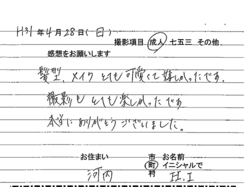 H31年4月28日(日)
撮影項目 成人 七五三 その他
感想をお願いします
髪型、メイクとても可愛くて嬉しかったです。
撮影もとても楽しかったです。
本当にありがとうございました。
お住まい 市 お名前
町 イニシャルで
河内 村 H.I